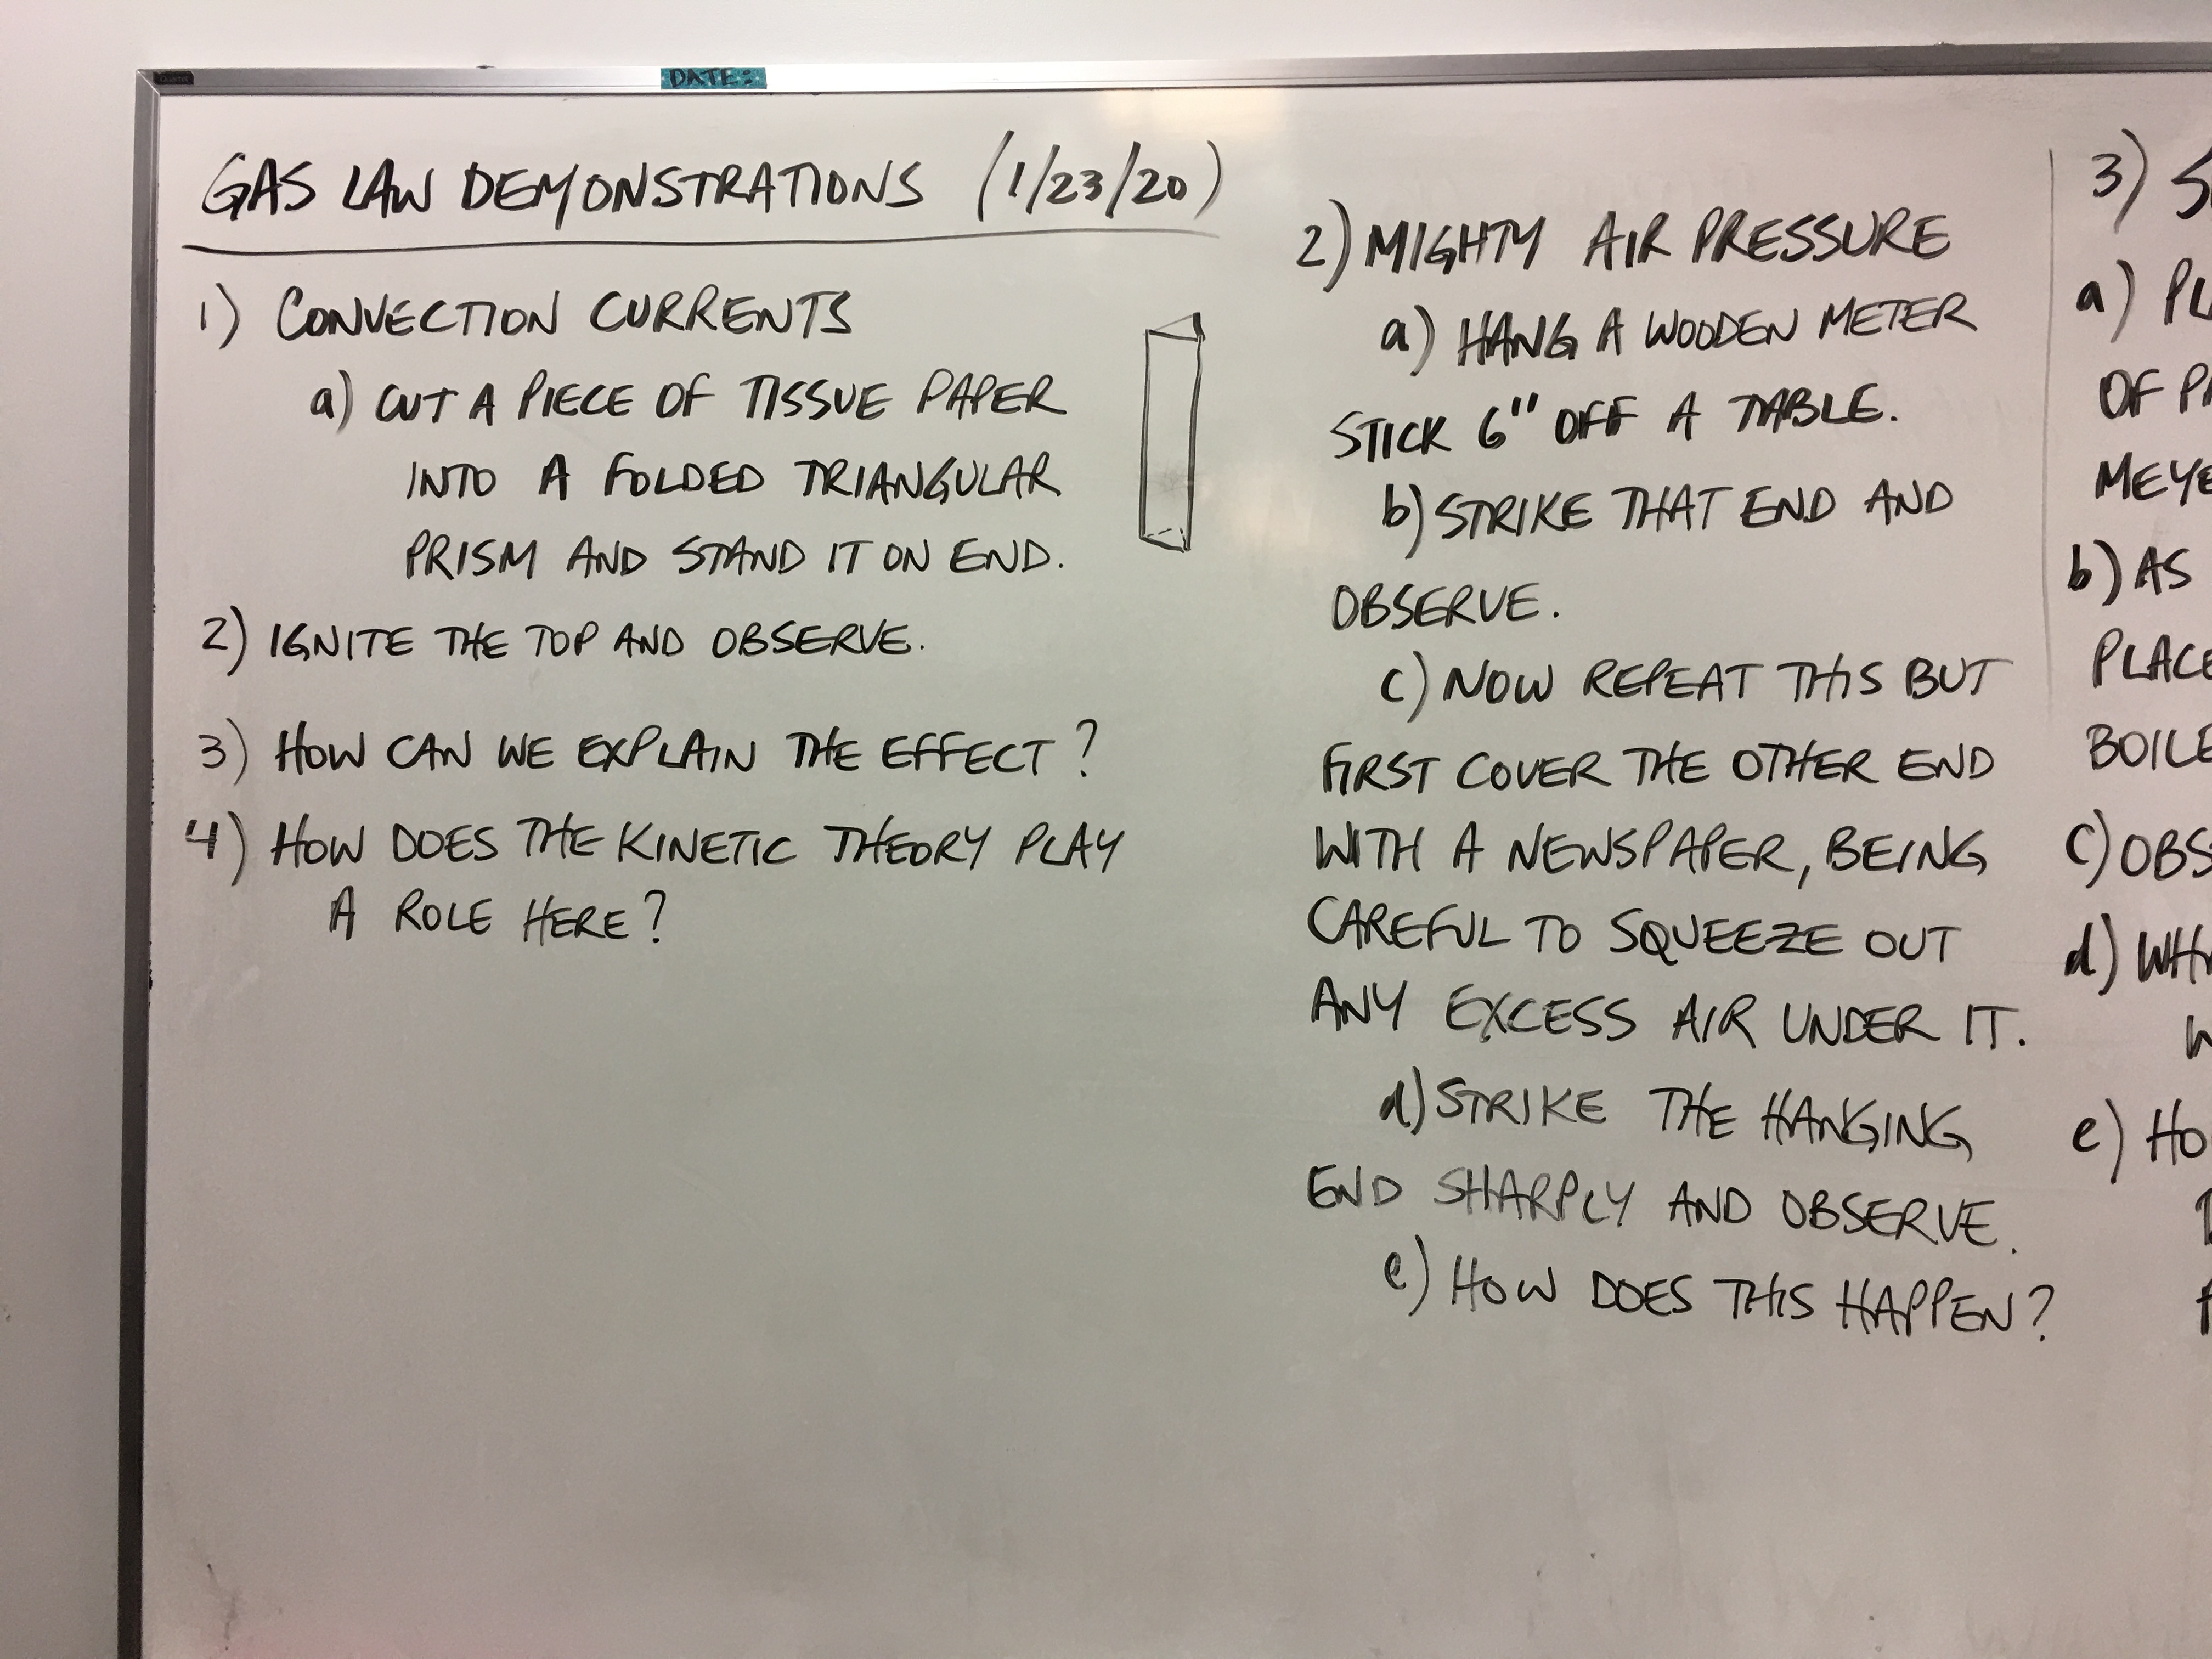 DATE:
GAS LAW DEMONSTRATIONS (1/23/20)
1) CONVECTION CURRENTS
a) CUT A PIECE OF TISSUE PAPER
INTO A FOLDED TRIANGULAR
PRISM AND STAND IT ON END.
2) IGNITE THE TOP AND OBSERVE.
3) HOW CAN WE EXPLAIN THE EFFECT?
4) HOW DOES THE KINETIC THEORY PLAY
A ROLE HERE?
2) MIGHTY AIR PRESSURE
a) HANG A WOODEN METER
STICK 6" OFF A TABLE.
b) STRIKE THAT END AND
OBSERVE.
c) NOW REPEAT THIS BUT
FIRST COVER THE OTHER END
WITH A NEWSPAPER, BEING
CAREFUL TO SQUEEZE OUT
ANY EXCESS AIR UNDER IT.
d) STRIKE THE HANGING
END SHARPLY AND OBSERVE.
e) HOW DOES THIS HAPPEN?
3)
a)
OF
b) AS
c)
d)
e)